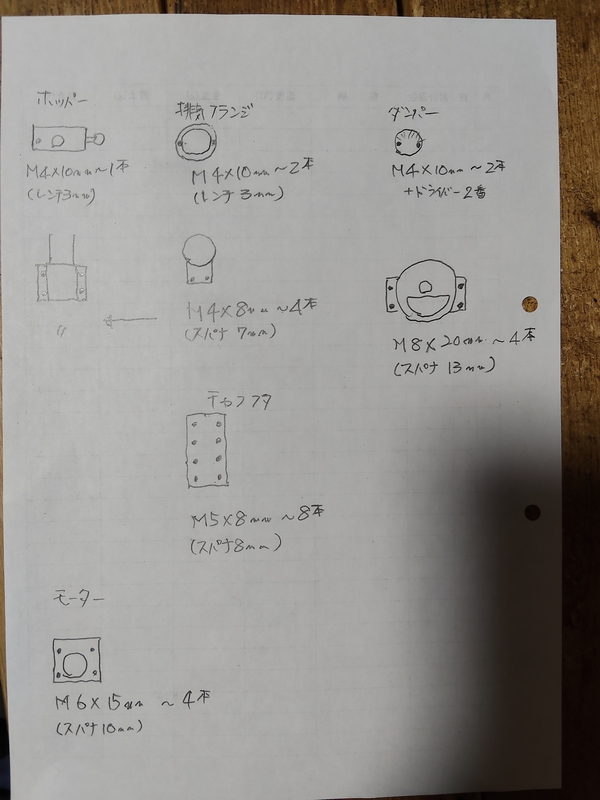 ホッパー
M4×10mm~1本
(レンチ3mm)
排気フランジ
M4×10mm~2本
(レンチ3mm)
ダンパー
M4×10mm~2本
+ドライバー2番
〃
M4×8mm~4本
(スパナ7mm)
M8×20mm~4本
(スパナ13mm)
M5×8mm~8本
(スパナ8mm)
モーター
M6×15mm~4本
(スパナ10mm)